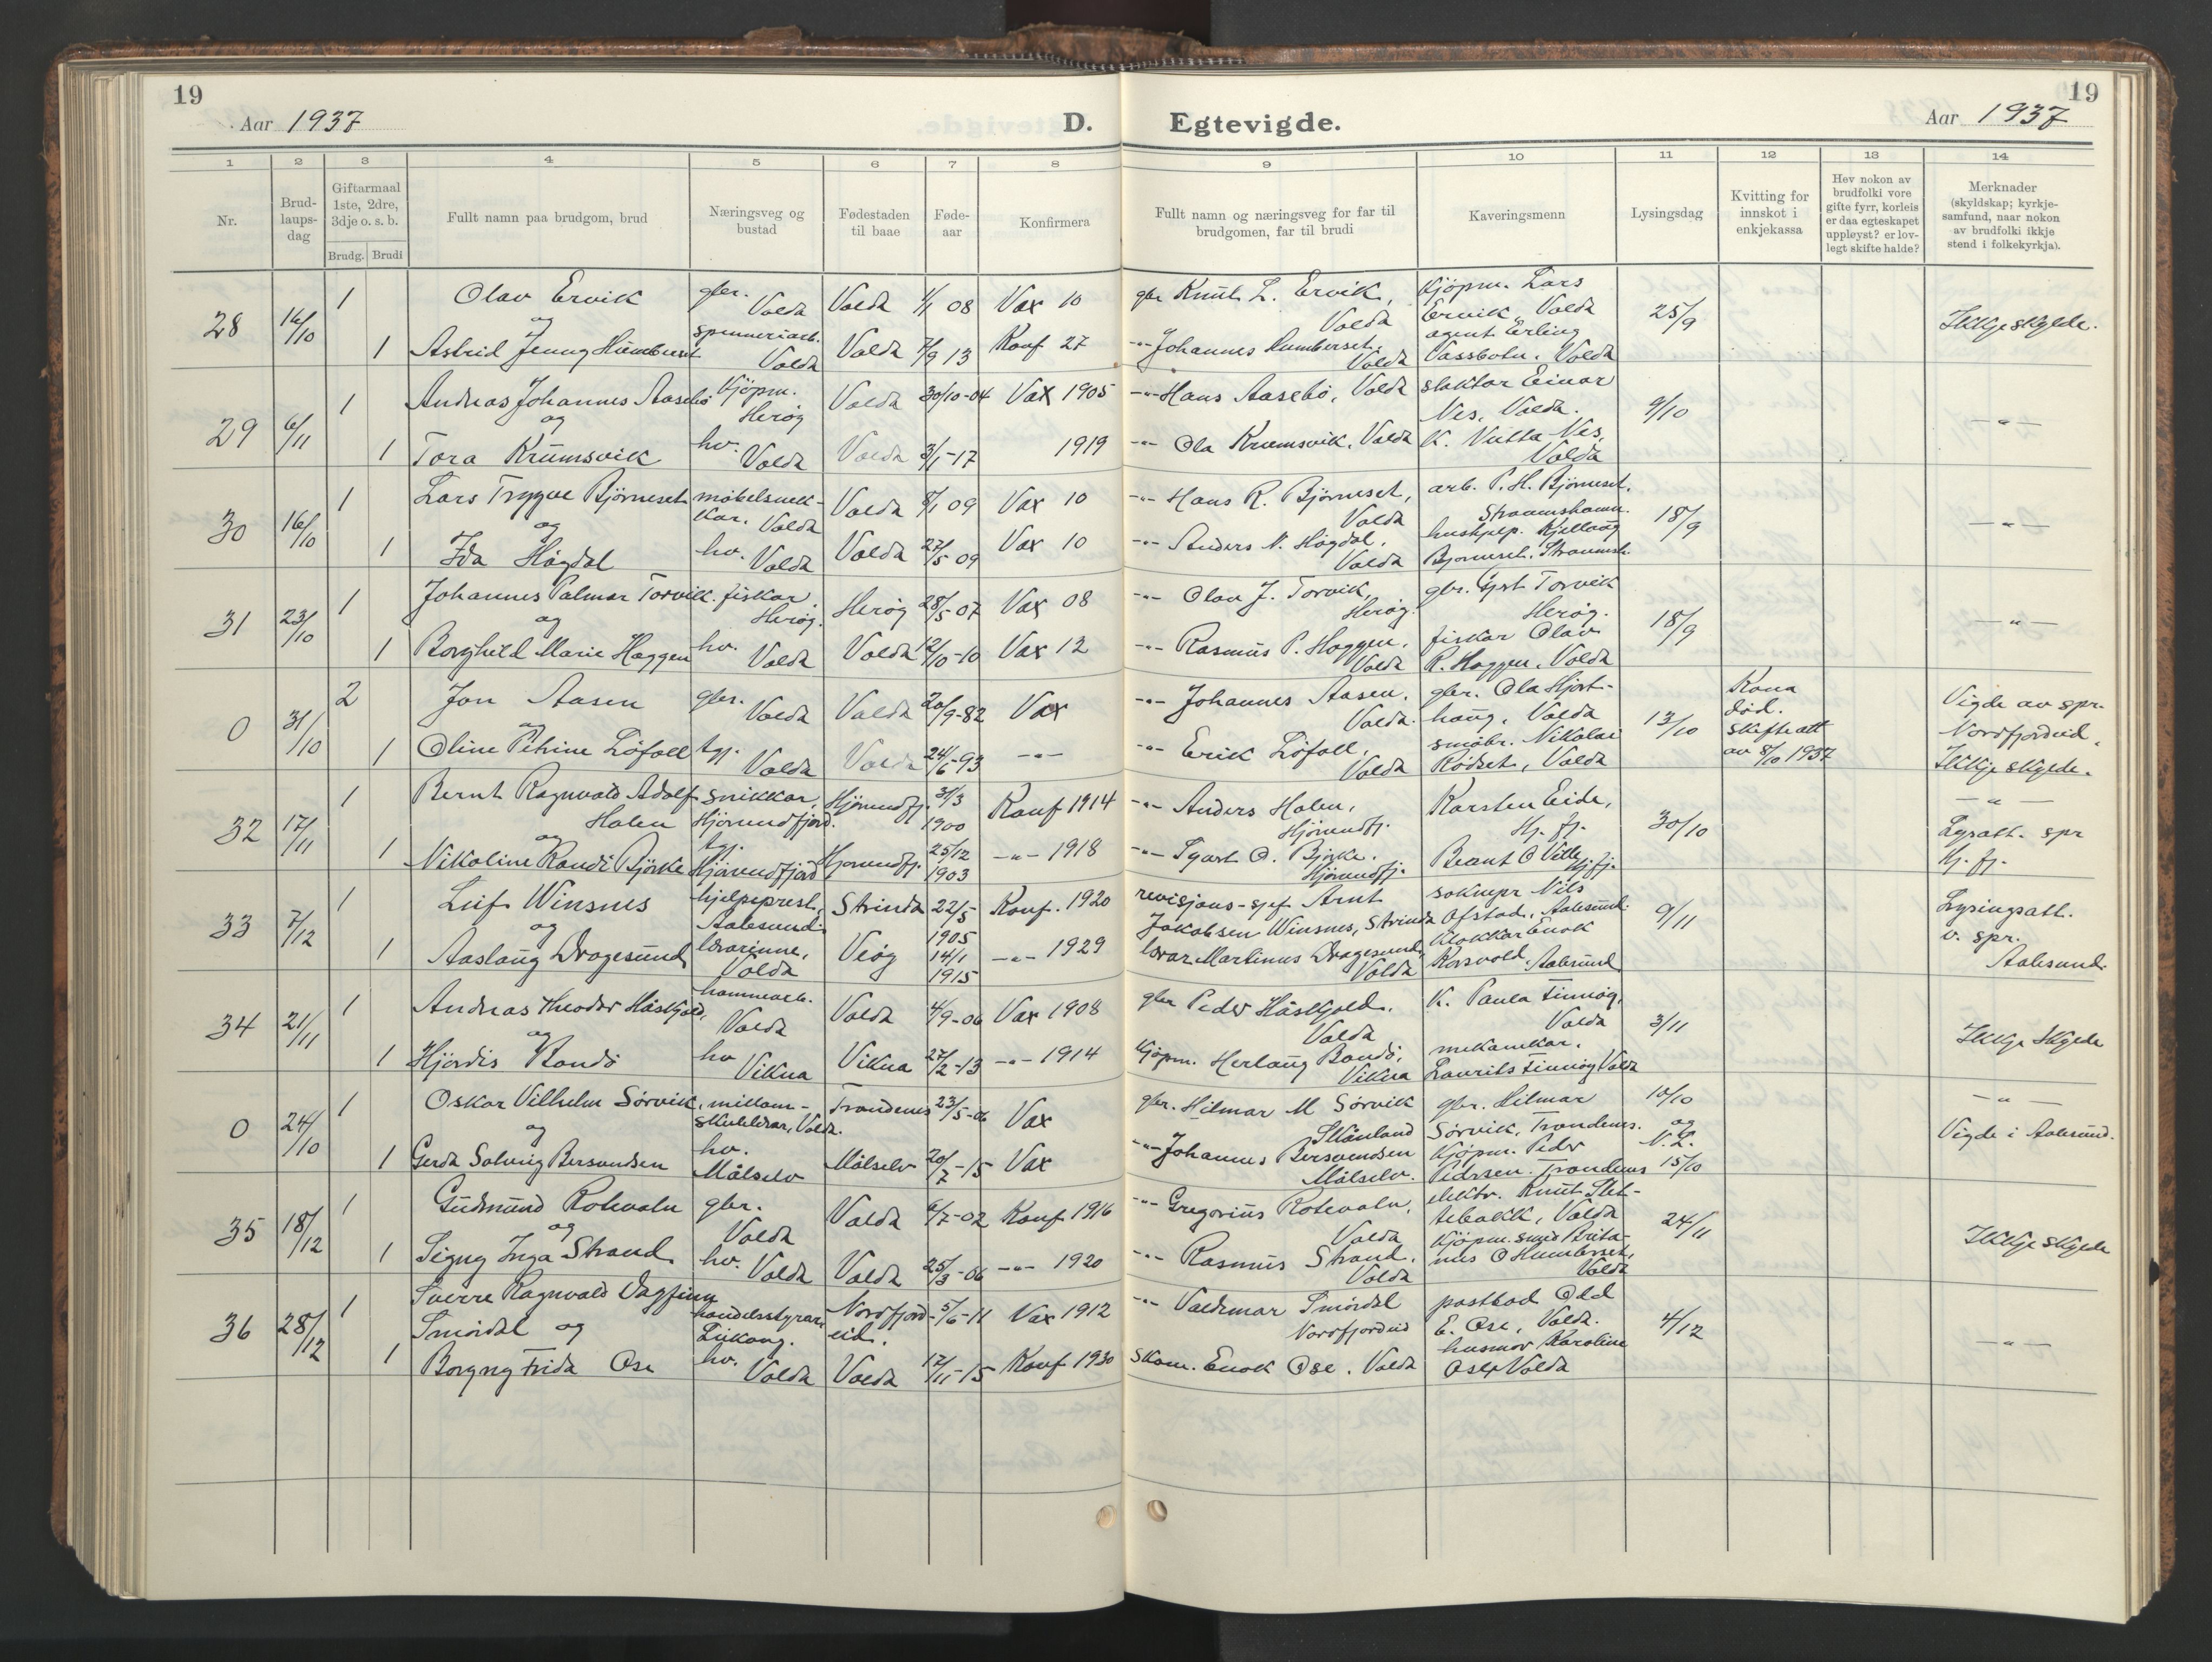 19
Aar 1937
D.
Egtevigde.
19
Aar 1937
1 2 3 4 5 6 7 8 9 10 11 12 13 14
Nr.
Brud-
laups-
dag
Giftarmaal
1ste, 2dre,
3dje o. s. b.
Brudg. Brudi
Fullt namn paa brudgom, brud
Næringsveg og
bustad
Fødestaden
til baae
Føde-
aar
Konfirmera
Fullt namn og næringsveg for far til
brudgomen, far til brudi
Kaveringsmenn
Lysingsdag
Kvitting for
innskot i
enkjekassa
Hev nokon av
brudfolki vore
gifte fyrr, korleis
er daa egteskapet
uppløyst? er lov-
legt skifte halde?
Merknader
(skyldskap; kyrkje-
samfund, naar nokon
av brudfolki ikkje
stend i folkekyrkja).
28 16/10
1 Olav Ervik
og
gbr.
Volda
Volda 1/1 08 Vax 10
gbr Knut L. Ervik,
Volda
Kjöpm. Lars
Ervik, Volda
25/9
Ikkje skylde.
1 Astrid Jenny Humberset
spinneriarb.
Volda
Volda 7/9 13 Konf 27
-"- Johannes Humberset.
Volda
agent Erling
Vassbotn. Volda
29 6/11
1 Andreas Johannes Aasebö
og
Kjöpm.
Heröy
Volda 30/10-04 Vax 1905
-"- Hans Aasebö, Volda
slaktar Einar
Nes, Volda.
9/10
-"-
1 Tora Krumsvik
hv.
Volda
Volda 3/1-17 1919
-"- Ola Krumsvik. Volda
K. Nes,
Volda
30 16/10
1 Lars Trygve Björneset
og
möbelsnek-
kar. Volda
Volda 8/1 09 Vax 10
-"- Hans R. Björneset,
Volda
arb. P. H. Björneset.
Straumshamn.
18/9
-"-
1 Ida Högdal
hv. Volda
Volda 27/5 09 Vax 10
-"- Anders N. Högdal.
Volda
hushjelp. Kjellaug
Bjorneset. Straumsh.
31 23/10
1 Johannes Palmar Torvik.
og
fiskar
Heröy.
Heröy 28/5-07 Vax 08
-"- Olav J. Torvik,
Heröy.
gbr. Torvik
Heröy.
18/9
-"-
1 Borghild Marie Haggen
hv.
Volda
Volda 12/10-10 Vax 12
-"- Rasmus P. Haggen.
Volda
fiskar Olav
R. Haggen. Volda
0 31/10
2 Jon Aasen
og
gbr.
Volda
Volda 20/9-82 Vax
-"- Johannes Aasen.
Volda.
gbr. Ola Hjort-
haug, Volda
13/10
Kona
död.
Skifteatt
av 8/10 1937
Vigde av spr.
Nordfjordeid.
Ikkje skylde.
1 Oline Petrine Löfoll
tj.
Volda
Volda 24/6-93 -"-
-"- Erik Löfoll.
Volda
småbr. Nikolai
Rödset, Volda
32 17/11
1 Bernt Ragnvald Adolf
Holen
og
snikkar,
Hjörundfjord.
Hjörundfj. 31/3
1900
Konf 1914
-"- Anders Holen,
Hjörundfj.
Karsten Eide,
Hj. fj.
30/10
-"-
Lysatt. spr
Hj. fj.
1 Nikoline Randi Björke
tj.
Hjörundfjord
Hjörundfj. 25/12
1903
-"- 1918
-"- Syvert O. Björke.
Hjörundfj.
Bernt O Ville Hj.fj.
33 7/12
1 Leif Winsnes
og
hjelpeprest,
Aalesund.
Strinda 22/5
1905
Konf. 1920
revisjons-sjef Arnt
Jakobsen Winsnes, Strinda
soknepr Nils
Ofstad, Aalesund.
9/11
Lysingsatt.
v. spr.
Aalesund.
1 Aaslaug Dragesund
lærarinne,
Volda
Veöy 14/1
1915
-"- 1929
lærar Martinus Dragesund,
Volda
klokkar Enok
Korsvold. Aalesund
34 21/11
1 Andreas Theodor Håskjold,
og
Volda
Volda 4/9-06 Vax 1908
gbr Peder Håskjold.
Volda
K. Paula Finnöy,
Volda
3/11
Ikkje Skylde
1 Hjördis Ramdö
hv
Vikna
Vikna 27/2-13 -"- 1914
Kjöpm. Herlaug Ramdö,
Vikna
mekanikar.
Laurits Finnöy Volda
0 24/10
1 Oskar Vilhelm Sörvik,
og
millom-
skulelærar, Volda.
Trondenes 23/5-06 Vax
gbr. Hilmar M Sörvik
Skånland
gbr. Hilmar
Sörvik, Trondenes.
10/10
og
N. L.
15/10
-"-
Vigde i Aalesund.
1 Gerda Solveig Bersvendsen
hv.
Målselv
Målselv 20/7-15 Vax
-"- Johannes Bersvendsen
Målselv.
Kjöpm. Peder
Pedersen. Trondenes
35 18/12
1 Gudmund Rotevatn
og
gbr.
Volda
Volda 6/7-02 Konf 1916
-"- Gregorius Rotevatn,
Volda
elektr. Knut Slet-
tebakk, Volda
24/11
Ikkje skylde
1 Signy Inga Strand
hv. Volda
Volda 25/3-06 -"- 1920
-"- Rasmus Strand.
Volda
Kjöpm. smed Brita-
nus O Humberset,
Volda
36 28/12
1 Sverre Ragnvald Dagfinn
Smördal og
handelsstyrar,
Eikang.
Nordfjord-
eid.
5/6-11 Vax 1912
-"- Valdemar Smördal
Nordfjordeid
postbod Odd
E. Ose, Volda.
4/12
-"-
1 Borgny Frida Ose
hv. Volda
Volda 17/11-15 Konf 1930
skom. Enok Ose. Volda
husmor Karoline
Ose, Volda